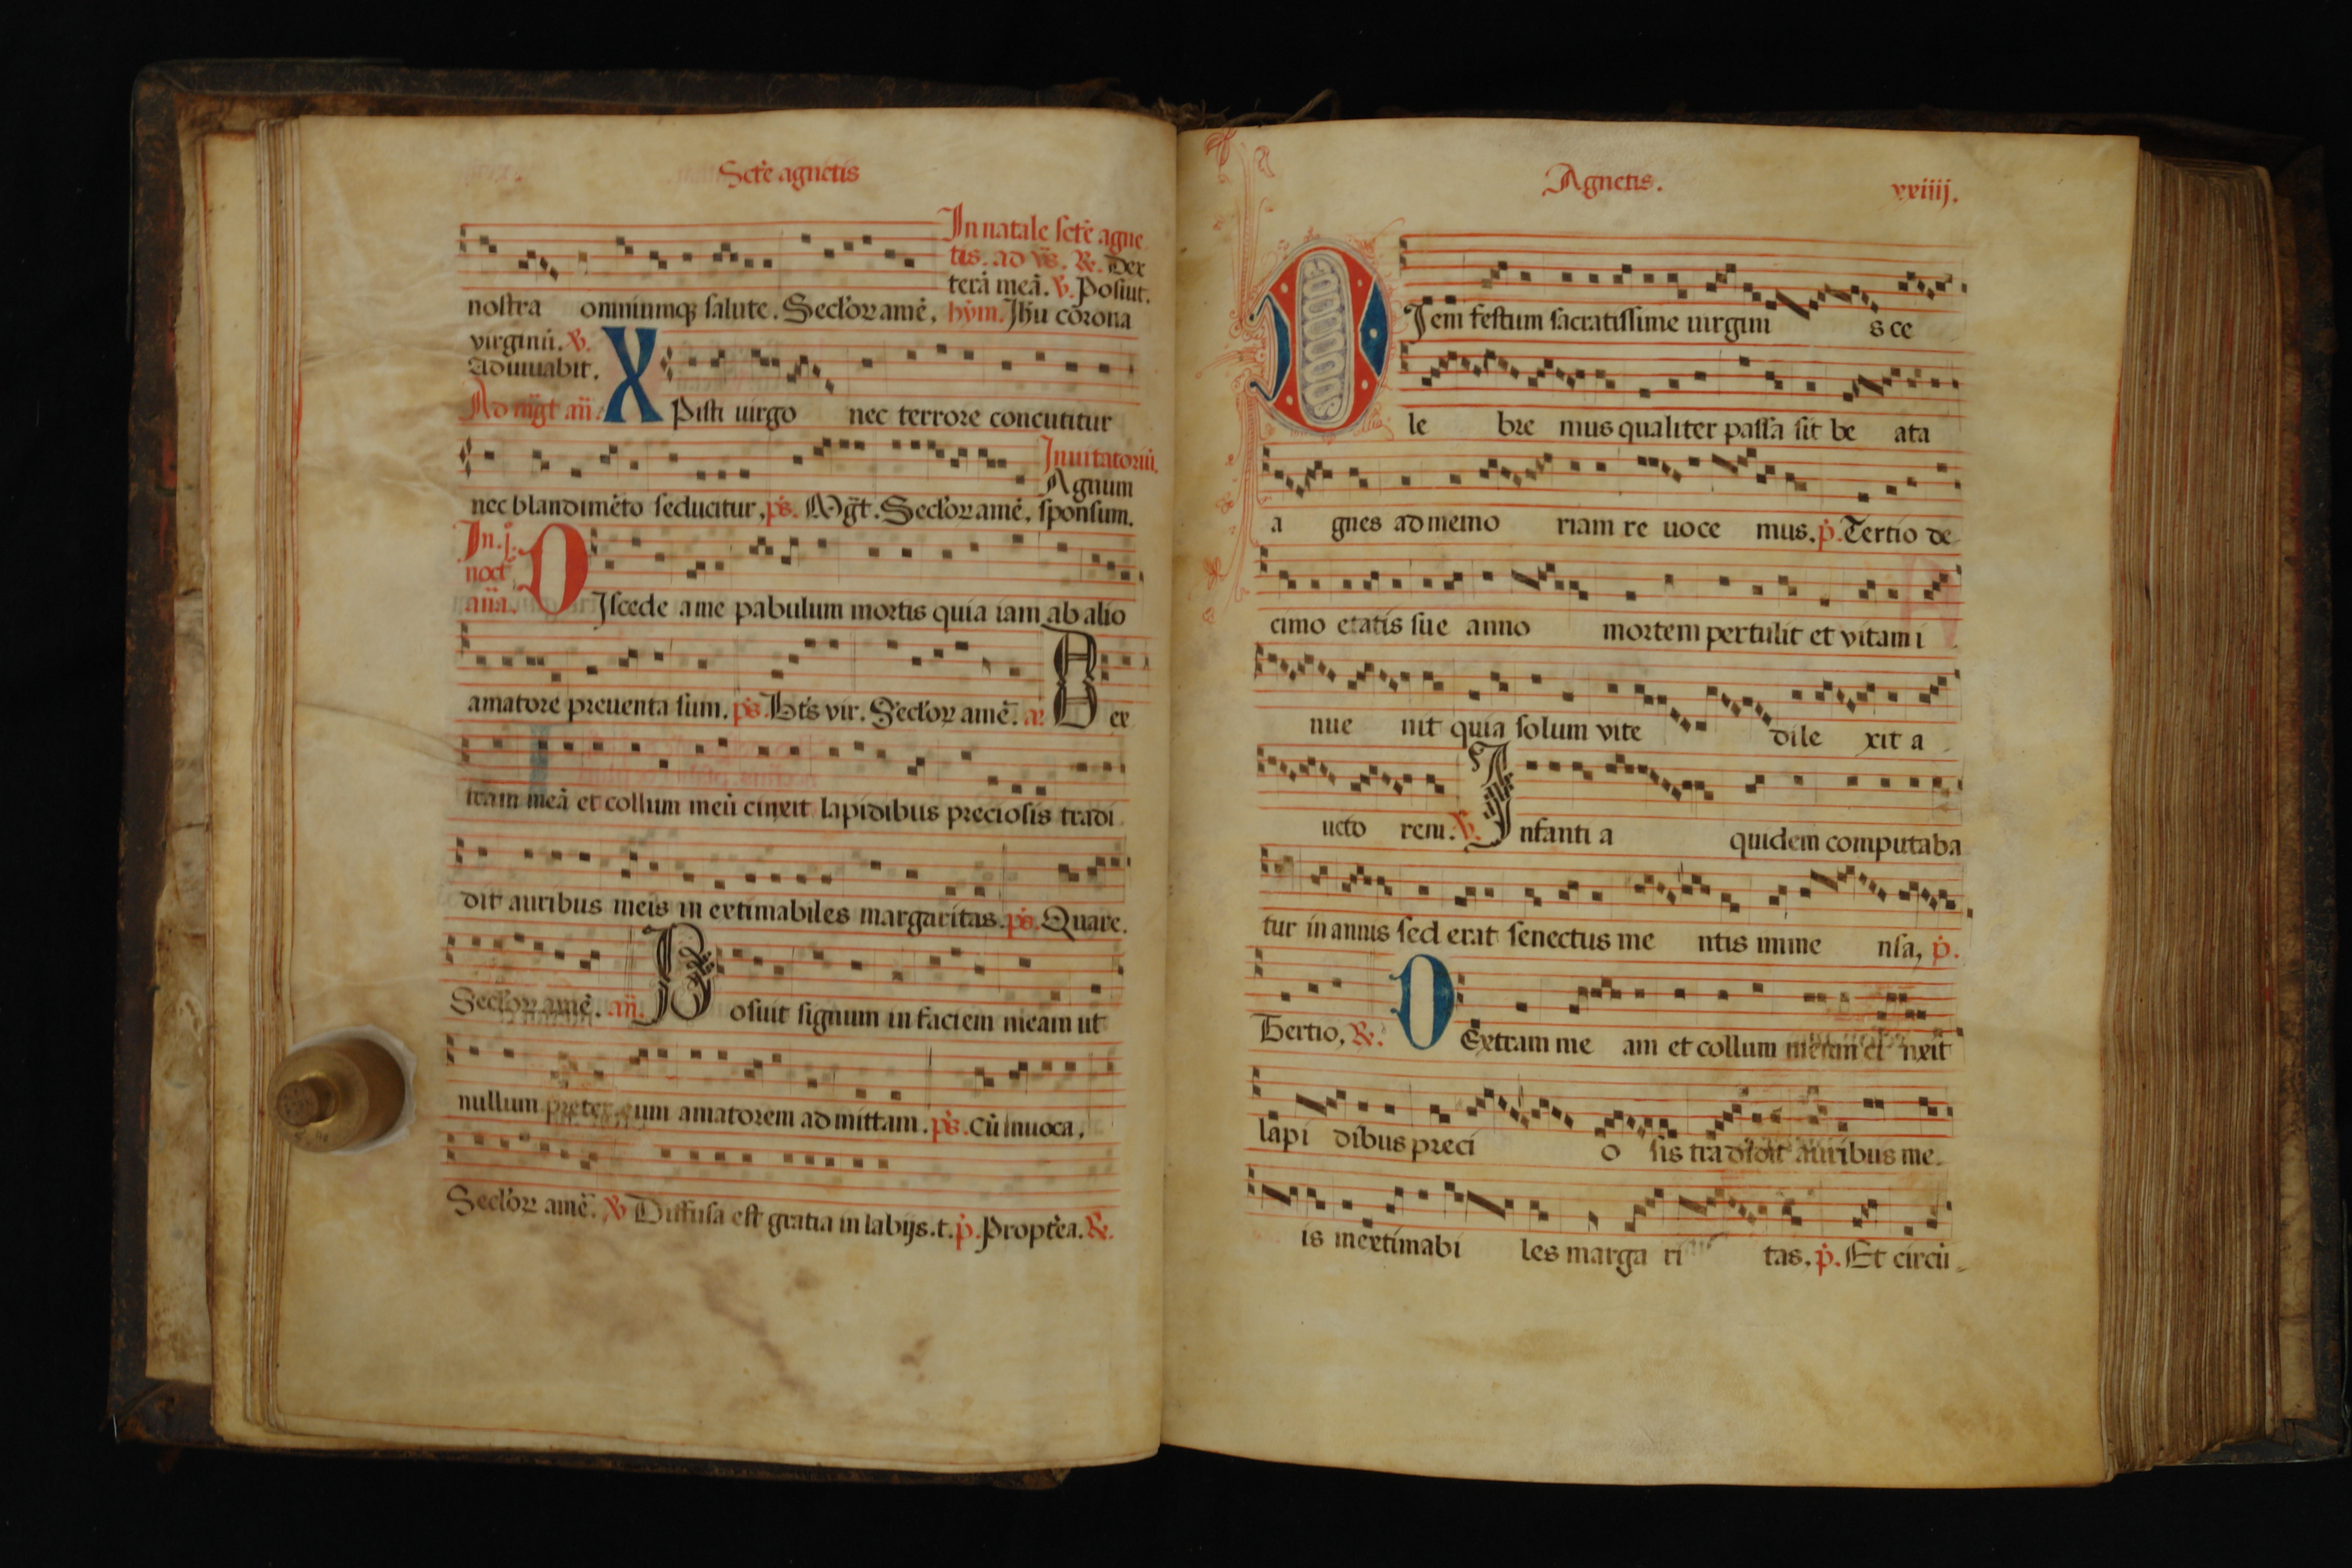 Scte agnetis
In natale scte agne
tis. ad vs. R. Dex
terā meā. V. Posuit.
nostra omniumq; salute. Seclor amē. hym. Jhu corona
virginū. V.
Adiuuabit.
Ad mgt an.
XPisti uirgo nec terrore concutitur
Inuitatoriū.
Agnum
nec blandimēto seducitur, ps. Mgt. Seclor amē. sponsum.
In. j.
noct
aña.
DJscede a me pabulum mortis quia iam ab alio
amatore preuenta sum. ps. Bts vir. Seclor amē. a: Dex
tram meā et collum meū cinxit lapidibus preciosis tradi
dit auribus meis in extimabiles margaritas. ps. Quare.
Seclor amē. an. Posuit signum in faciem meam ut
nullum preter eum amatorem admittam. ps. Cū inuoca.
Seclor amē. V Diffusa est gratia in labijs. t. p. Proptēa. R.
Agnetis. xxiiij.
DJem festum sacratissime uirgini s ce
le bre mus qualiter passa sit be ata
a gnes ad memo riam re uoce mus. p. Tertio de
cimo etatis sue anno mortem pertulit et vitam i
nue nit quia solum vite dile xit a
ucto rem. V. Infanti a quidem computaba
tur in annis sed erat senectus me ntis inme nsa, p.
Tertio, R. DExtram me am et collum meum ci nxit
lapi dibus preci o sis tradidit auribus me
is inextimabi les marga ri tas. p. Et circū